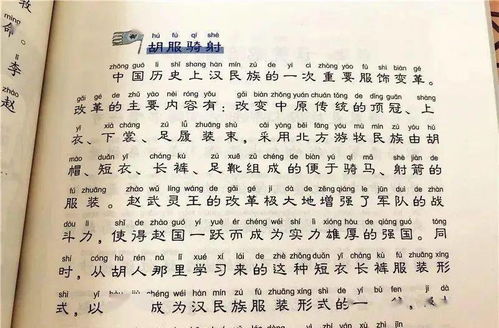 牧
命。
李
赵
hú fú qí shè
胡服骑射
zhōng guó lì shǐ shang hàn mín zú de yí cì zhòng yào fú shì biàn gé
中国历史上汉民族的一次重要服饰变革。
gǎi gé de zhǔ yào nèi róng yǒu gǎi biàn zhōng yuán chuán tǒng de dǐng guān shàng
改革的主要内容有：改变中原传统的顶冠、上
yī xià cháng zú lǚ zhuāng shù cǎi yòng běi fāng yóu mù mín zú yóu hú
衣、下裳、足履装束，采用北方游牧民族由胡
mào duǎn yī cháng kù zú xuē zǔ chéng de biàn yú qí mǎ shè jiàn de
帽、短衣、长裤、足靴组成的便于骑马、射箭的
fú zhuāng zhào wǔ líng wáng de gǎi gé jí dà de zēng qiáng le jūn duì de zhàn
服装。赵武灵王的改革极大地增强了军队的战
dòu lì shǐ dé zhào guó yí yuè ér chéng wéi shí lì xióng hòu de qiáng guó tóng
斗力，使得赵国一跃而成为实力雄厚的强国。同
shí cóng hú rén nà lǐ xué xí lái de zhè zhǒng duǎn yī cháng kù fú zhuāng xíng
时，从胡人那里学习来的这种短衣长裤服装形
shì yǐ chéng wéi hàn mín zú fú zhuāng xíng shì de yī
式，以 成为汉民族服装形式的一